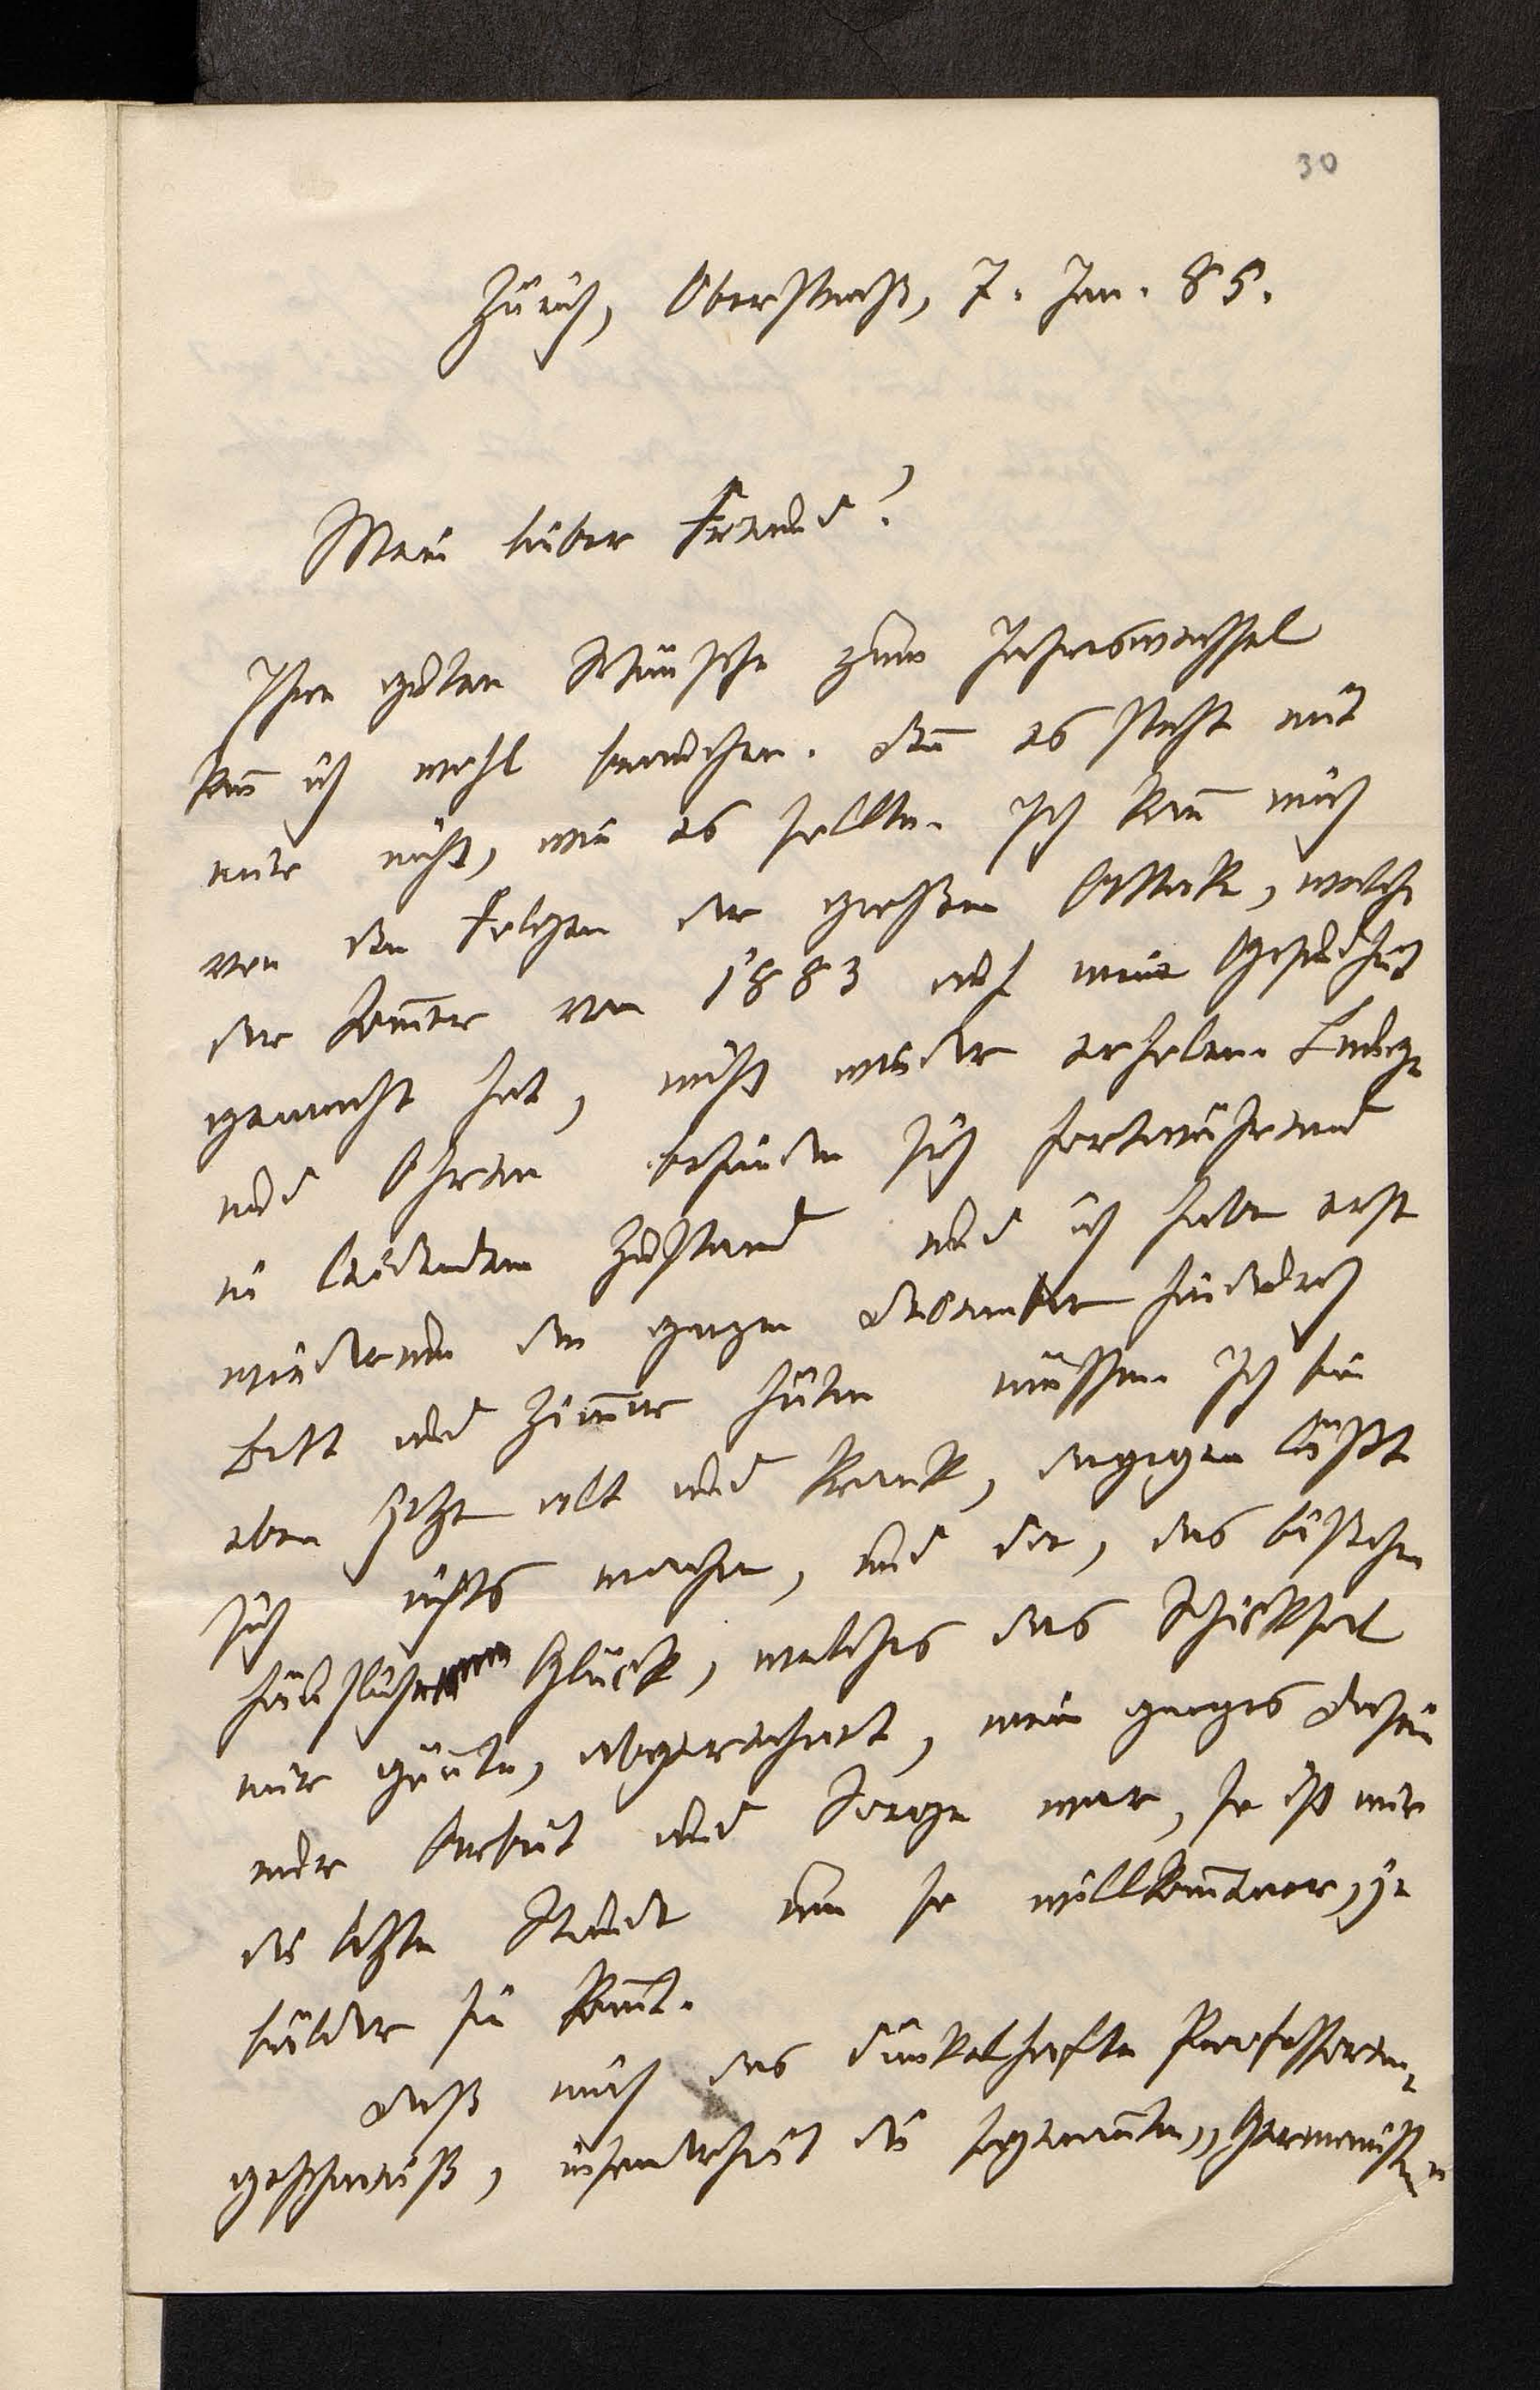 30
Zürich, Oberstraß, 7. Jan. 85.
Mein lieber Freund!
Ihre guten Wünsche zum Jahreswechsel
kan̄ ich wohl brauchen. Den̄ es steht mit
mir nicht, wie es sollte. Ich kan̄ mich
von den Folgen der großen Attake, welche
der Som̄er von 1883 auf meine Gesundheit
gemacht hat, nicht wieder erholen. Lunge
und Ohren befinden sich fortwährend
in leidendem Zustand und ich habe erst
wiederum den ganzen Dezember hindurch
Bett und Zim̄er hüten müssen. Ich bin
eben jetzt alt und krank, dagegen läßt
sich nichts machen, und da, das bißchen
häusliche Glück, welches das Schicksal
mir gön̄te, abgerechnet, mein ganzes Dasein
nur Arbeit und Sorge war, so ist mir
die letzte Stunde um so willkom̄ener, je
bälder sie kom̄t.
Daß mich das dünkelhafte Professoren-
geschmeiß, insonderheit die sogenan̄ten „Germanisten"